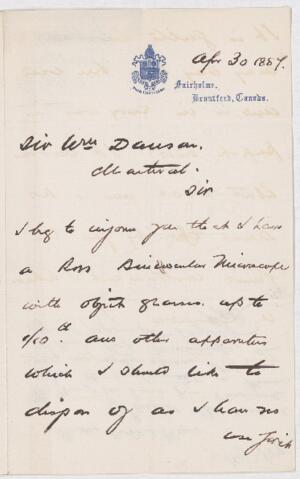 Apr 30 1887.
Fairholme,
Brantford, Canada.
Sir Wm Dawson.
Montreal.
Sir
I beg to inform you that I have
a Ross Binocular Microscope
with object glasses up to
1/10th and other apparatus
which I should like to
dispose of as I have no
use for it